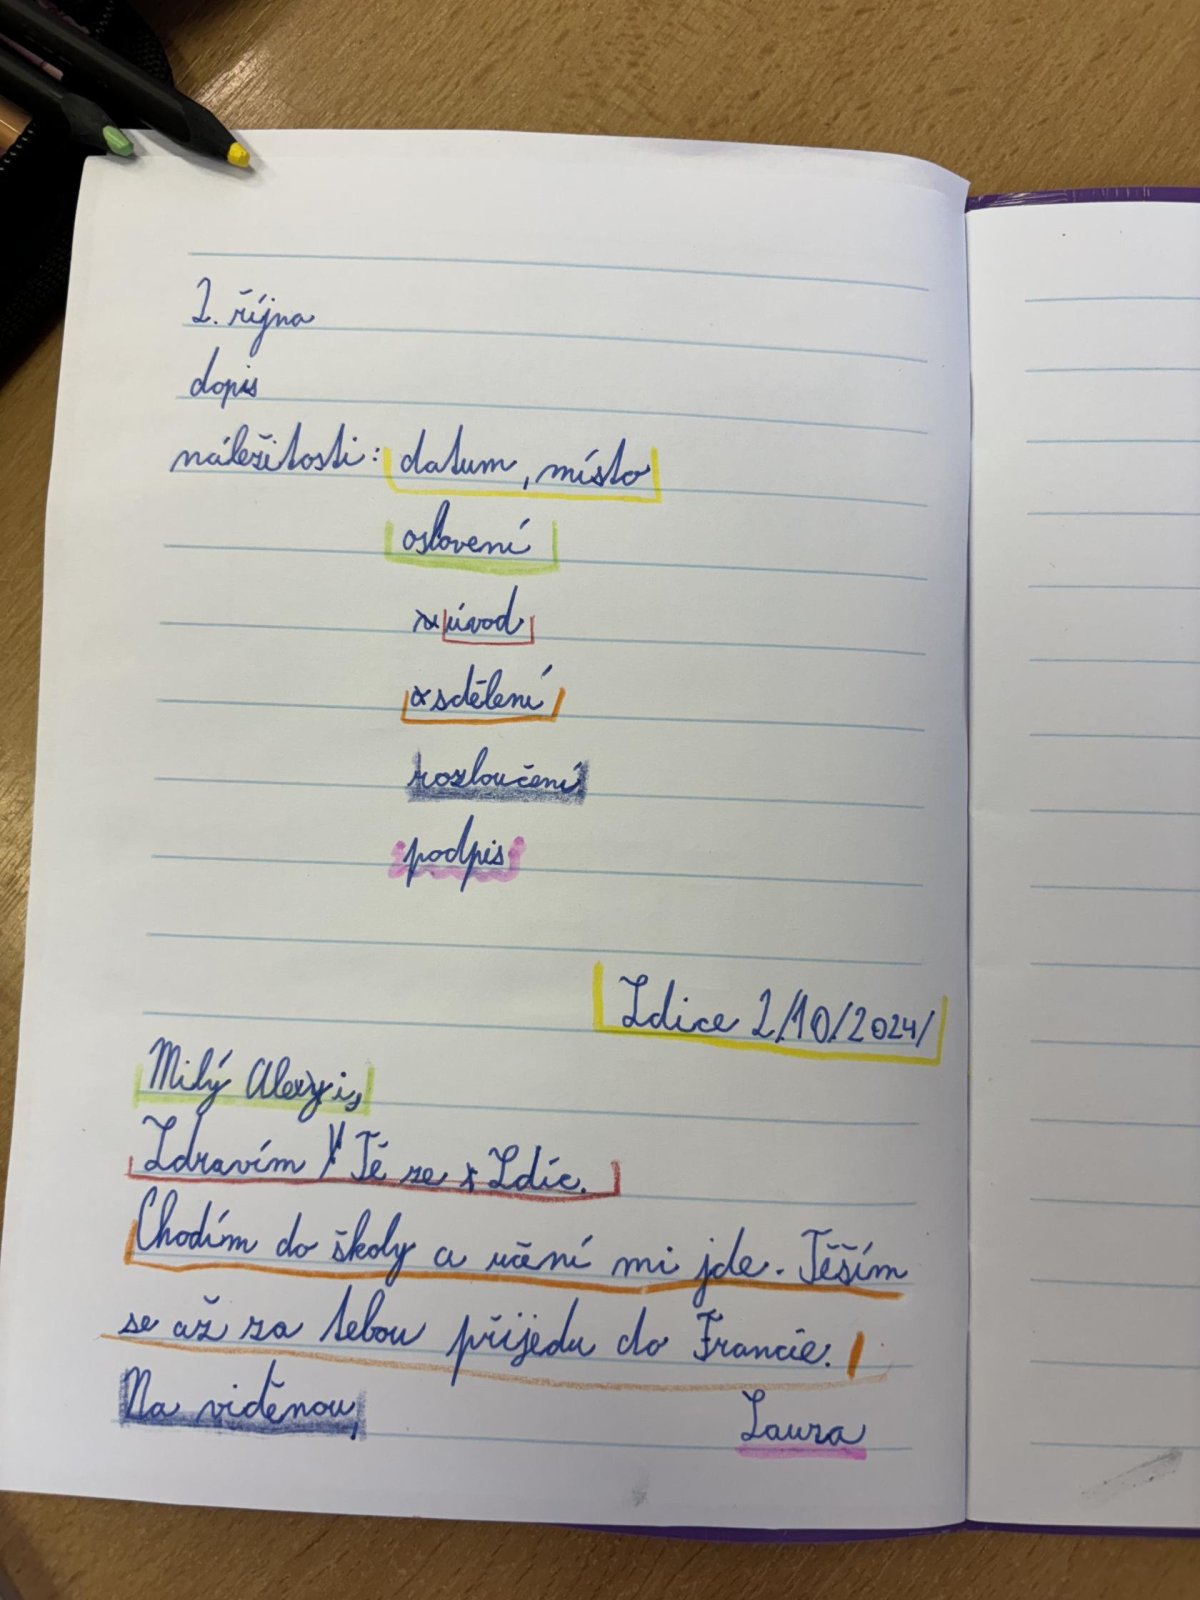 2. října
dopis
náležitosti: datum, místo
oslovení
úvod
sdělení
rozloučení
podpis
Zdice 2/10/2024/
Milý Alexis,
Zdravím Tě ze Zdic.
Chodím do školy a učení mi jde. Těším
se až za tebou přijedu do Francie.
Na viděnou,
Laura